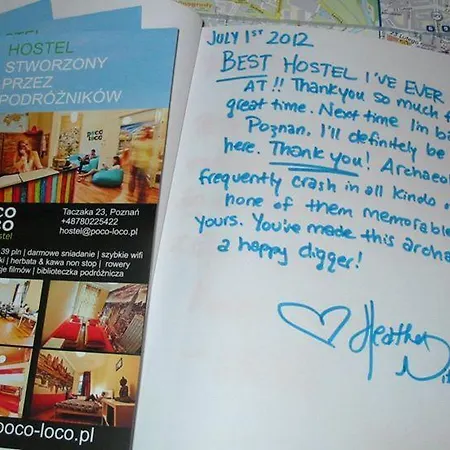 HOSTEL
STWORZONY
PRZEZ
PODRÓŻNIKÓW
POCO
LOCO
Taczaka 23, Poznań
+48780225422
hostel@poco-loco.pl
39 pln | darmowe śniadanie | szybkie wifi
herbata & kawa non stop | rowery
filmów | biblioteczka podróżnicza
poco-loco.pl
JULY 1ST 2012
BEST HOSTEL I'VE EVER
AT!! Thankyou so much
great time. Next time I'm
Poznan. I'll definitely be
here. Thank you!
frequently crash in all kinds
none of them memorable
yours. You've made this
a happy digger!
Heather